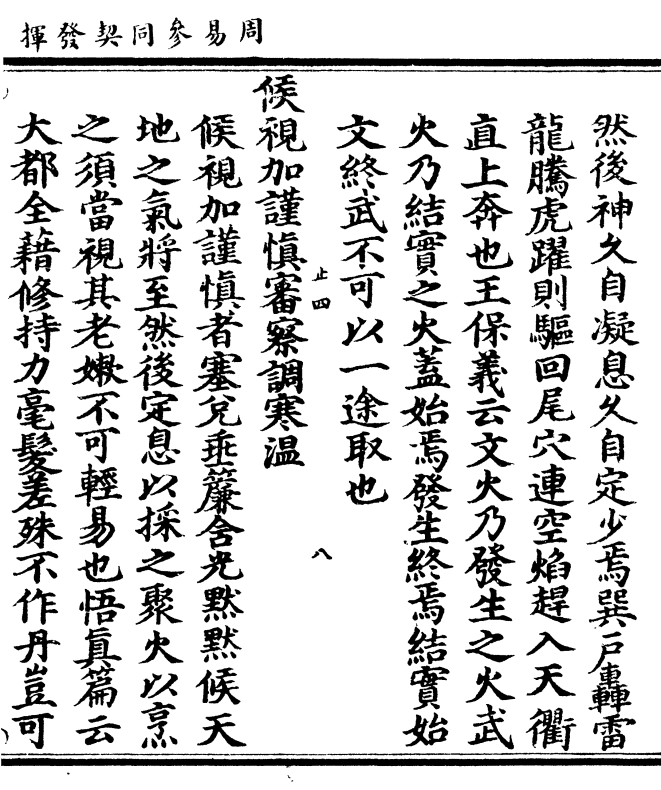 周易參同契發揮
然後神久自凝息久自定少焉巽戶轟雷
龍騰虎躍則驅回尾穴連空焰趕入天衢
直上奔也王保義云文火乃發生之火武
火乃結實之火蓋始焉發生終焉結實始
文終武不可以一途取也
止四
八
候視加謹愼審察調寒温
候視加謹愼者塞兌垂簾含光默默候天
地之氣將至然後定息以採之聚火以烹
之須當視其老嫰不可輕易也悟眞篇云
大都全藉修持力毫髮差殊不作丹豈可